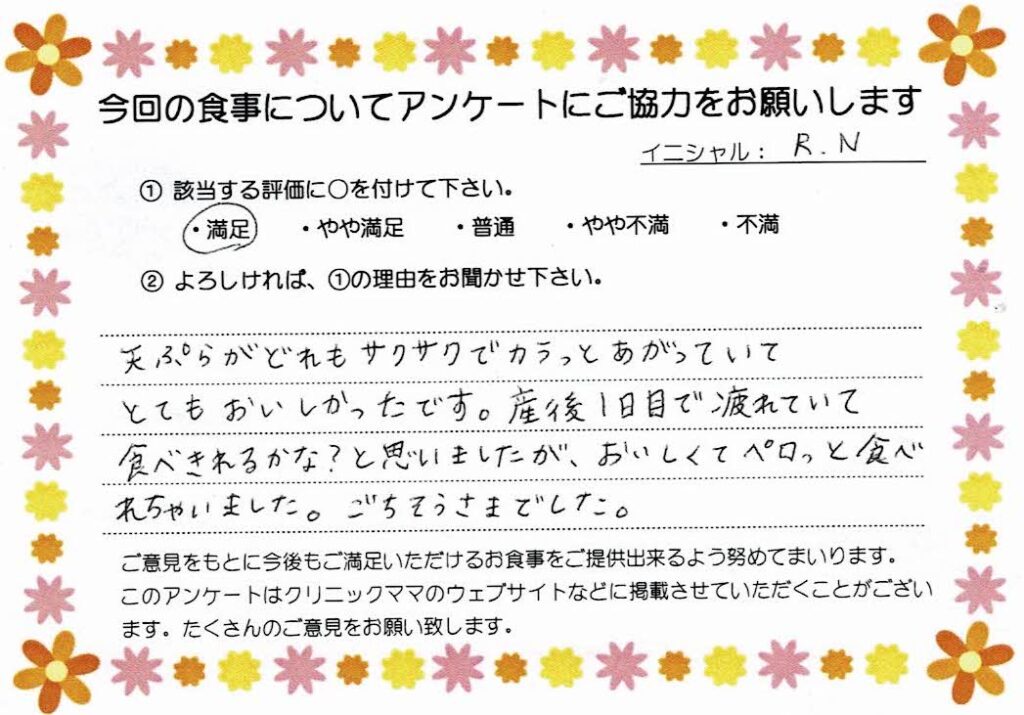 今回の食事についてアンケートにご協力をお願いします
イニシャル： R.N
① 該当する評価に○を付けて下さい。
・満足 ・やや満足 ・普通 ・やや不満 ・不満
② よろしければ、①の理由をお聞かせ下さい。
天ぷらがどれもサクサクでカラっとあがっていて
とてもおいしかったです。産後1日目で疲れていて
食べきれるかな？と思いましたが、おいしくてペロっと食べ
れちゃいました。ごちそうさまでした。
ご意見をもとに今後もご満足いただけるお食事をご提供出来るよう努めてまいります。
このアンケートはクリニックママのウェブサイトなどに掲載させていただくことがござい
ます。たくさんのご意見をお願い致します。